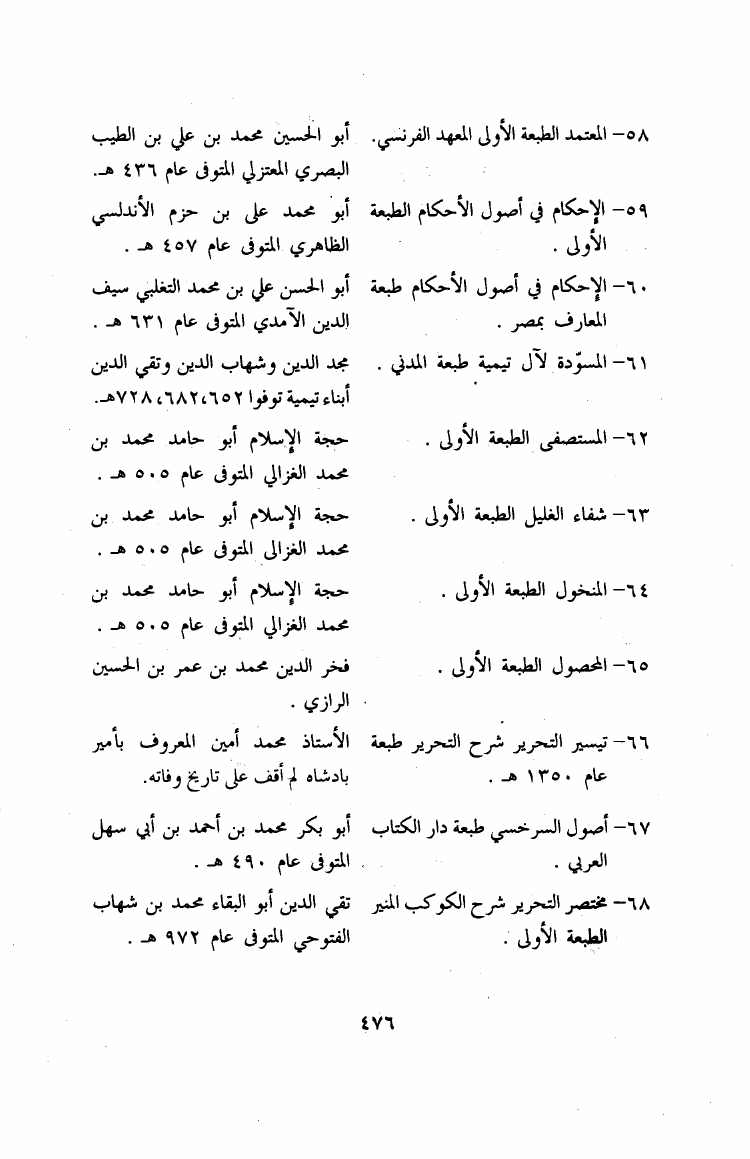 ٥٨– المعتمد الطبعة الأولى المعهد الفرنسي. أبو الحسين محمد بن علي بن الطيب
البصري المعتزلي المتوفى عام ٤٣٦ هـ.
٥٩– الإحكام في أصول الأحكام الطبعة أبو محمد على بن حزم الأندلسي
الأولى . الظاهري المتوفى عام ٤٥٧ هـ .
٦٠– الإحكام في أصول الأحكام طبعة أبو الحسن علي بن محمد التغلبي سيف
المعارف بمصر . الدين الآمدي المتوفى عام ٦٣١ هـ .
٦١– المسوّدة لآل تيمية طبعة المدني . مجد الدين وشهاب الدين وتقي الدين
أبناء تيمية توفوا ٦٥٢،٦٨٢،٧٢٨هـ.
٦٢– المستصفى الطبعة الأولى . حجة الإسلام أبو حامد محمد بن
محمد الغزالي المتوفى عام ٥٠٥ هـ .
٦٣– شفاء الغليل الطبعة الأولى . حجة الإسلام أبو حامد محمد بن
محمد الغزالى المتوفى عام ٥٠٥ هـ .
٦٤– المنخول الطبعة الأولى . حجة الإسلام أبو حامد محمد بن
محمد الغزالي المتوفى عام ٥٠٥ هـ .
٦٥– المحصول الطبعة الأولى . فخر الدين محمد بن عمر بن الحسين
الرازي .
٦٦– تيسير التحرير شرح التحرير طبعة الأستاذ محمد أمين المعروف بأمير
عام ١٣٥٠ هـ . بادشاه لم أقف على تاريخ وفاته.
٦٧– أصول السرخسي طبعة دار الكتاب أبو بكر محمد بن أحمد بن أبي سهل
العربي . المتوفى عام ٤٩٠ هـ .
٦٨– مختصر التحرير شرح الكوكب المنير تقي الدين أبو البقاء محمد بن شهاب
الطبعة الأولى . الفتوحي المتوفى عام ٩٧٢ هـ .
٤٧٦